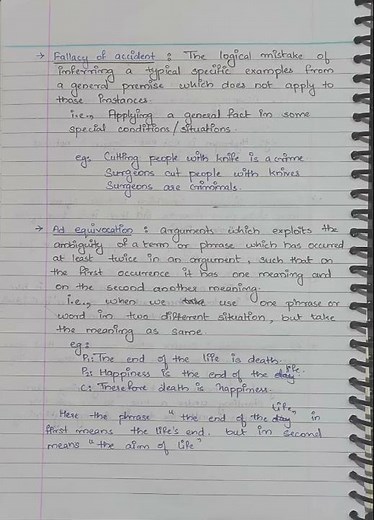 → Fallacy of accident : The logical mistake of
inferring a typical specific examples from
a general premise which does not apply to
those instances.
i.e., Applying a general fact in some
special conditions/situations.
eg: Cutting people with knife is a crime
Surgeons cut people with knives
Surgeons are criminals.
→ Ad equivocation : arguments which exploits the
ambiguity of a term or phrase which has occured
at least twice in an argument, such that on
the first occurrence it has one meaning and
on the second another meaning.
i.e., when we use one phrase or
word in two different situation, but take
the meaning as same.
eg:
P₁: The end of the life is death.
P₂: Happiness is the end of the day life.
C: Therefore death is happiness.
Here the phrase "the end of the day life" in
first means the life's end. but in second
means "the aim of life"